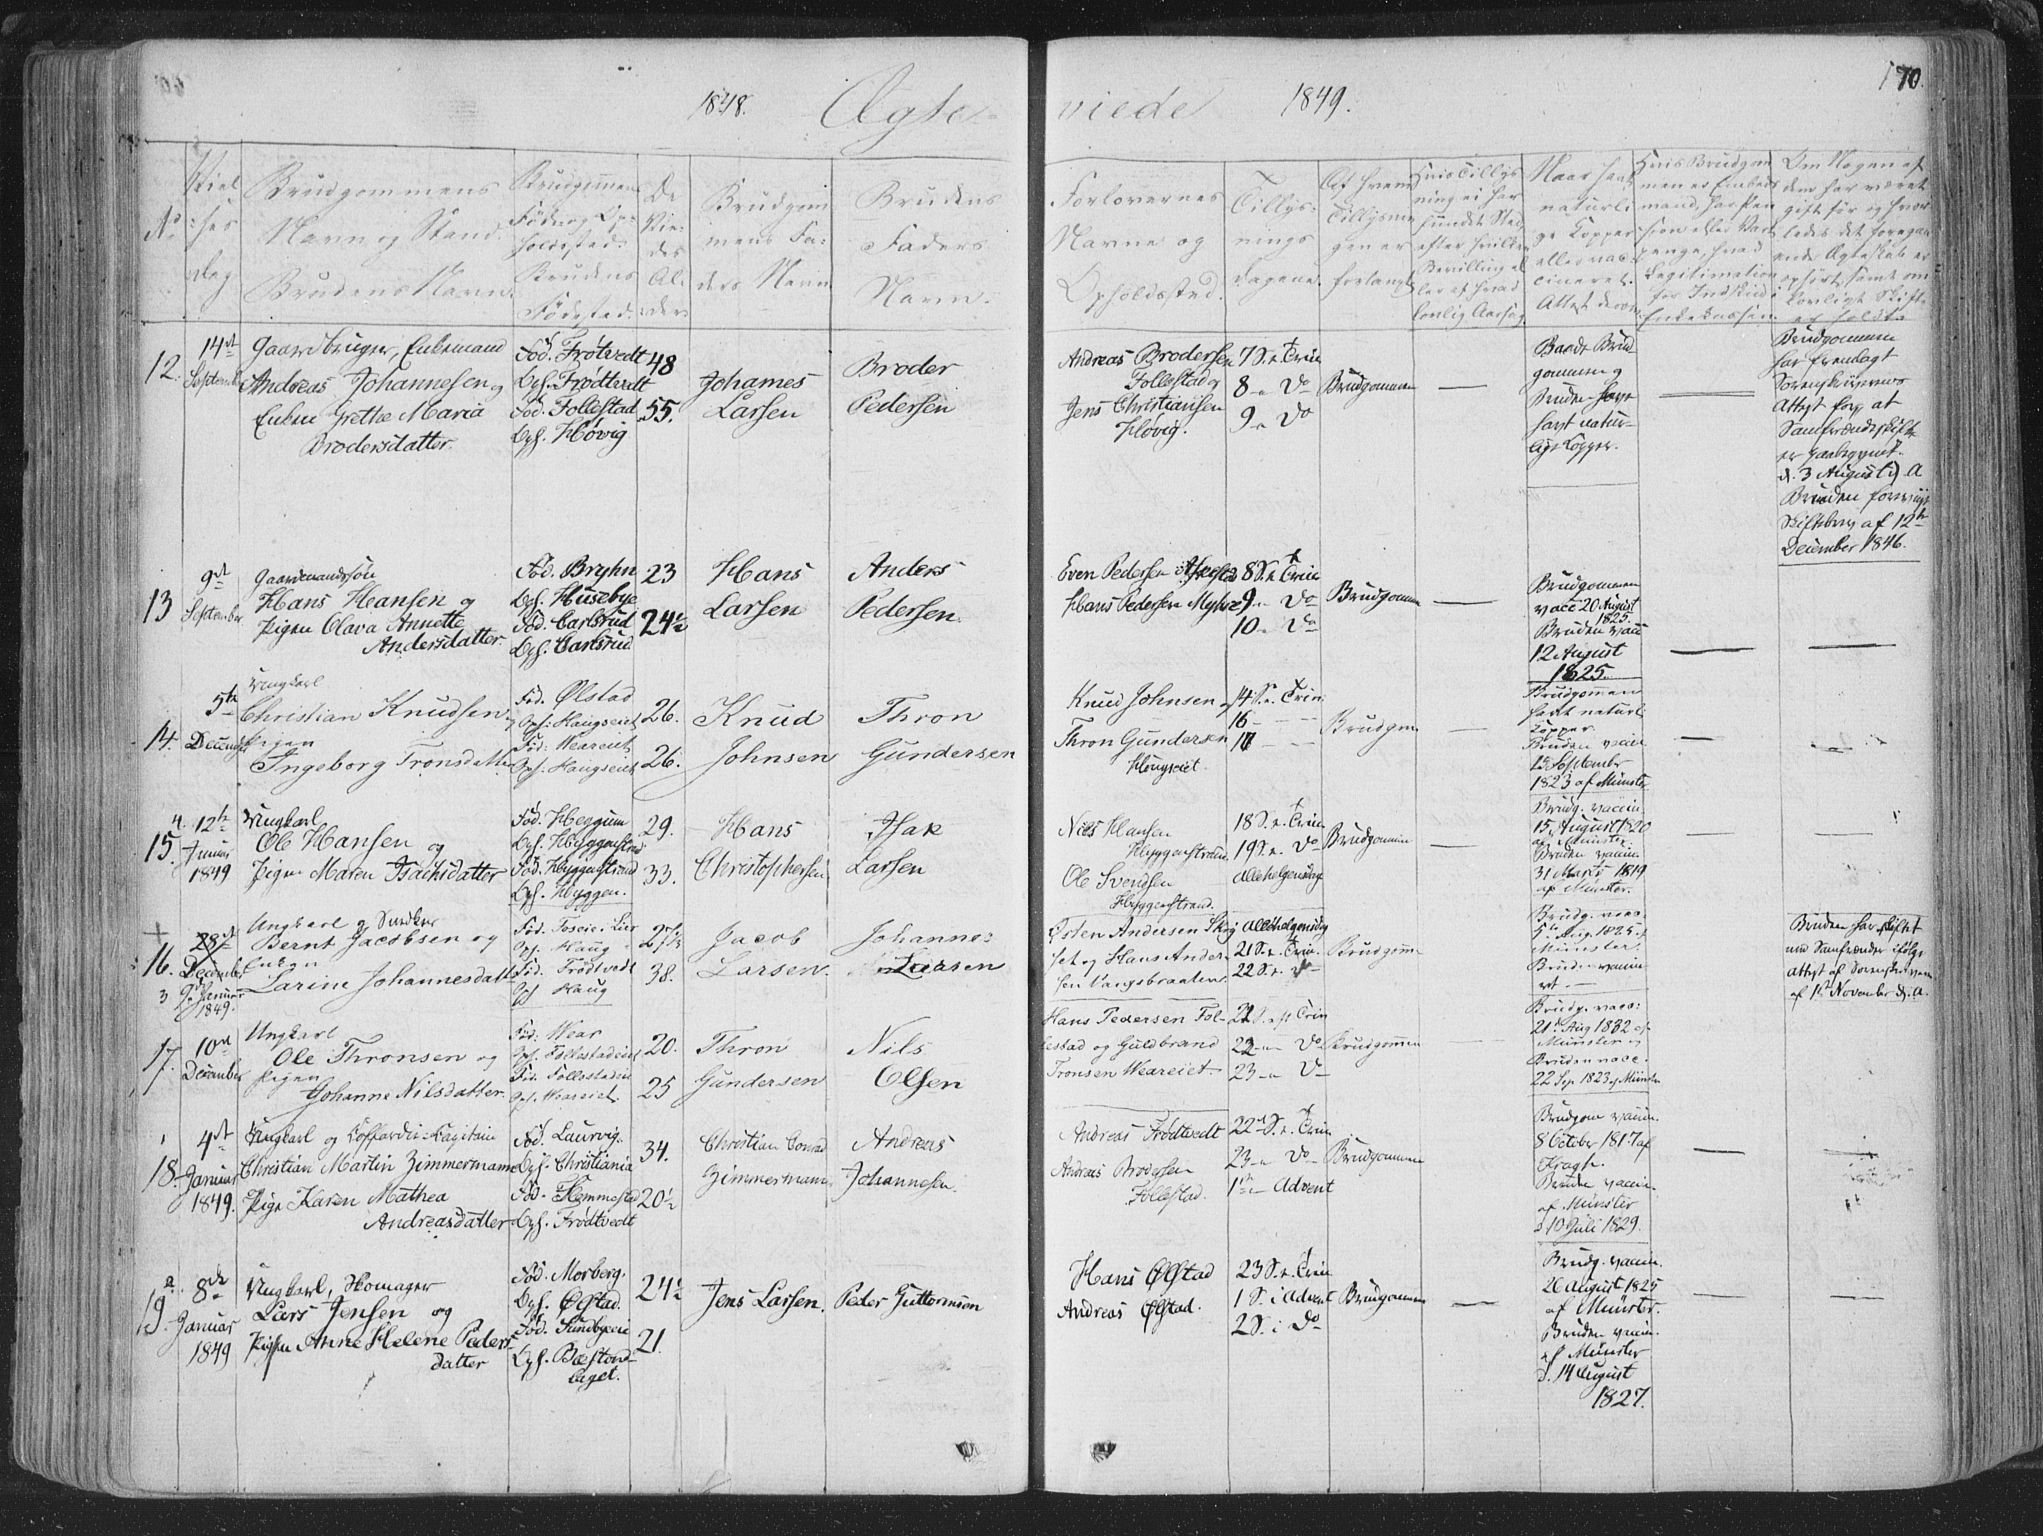 1848. Ægte-
viede 1849.
170.
No
Viel
:ses
dag
Brudgommens
Navn og Stand.
Brudens Navn.
Brudgommens
Føde og Op-
holdssted.
Brudens
Fødested.
De
Vie-
des
Al-
der
Brudgom
mens Fa-
ders Navn
Brudens
Faders
Navn.
Forlovernes
Navne og
Opholdssted.
Tillys-
nings
dagene.
Af hvem
Tillysnin
gen er
forlangt
Hvis Tillys
ning ei har
fundet Sted
efter hvilken
Bevilling el
ler af hvad
lovlig Aarsag
Naar havt
naturli
ge Kopper
eller vac-
cineret.
Attest derom
Hvis Brudgom
men er Embeds
mand, har Pen
sion eller Vart
penge, hvad
Legitimation
for Indskud i
Enkekassen.
Om Nogen af
dem har været
gift før og hvor
ledes det foregaa
ende Ægteskab er
ophørt, samt om
lovligt Skifte
er holdt.
12.
14de
September
Gaardbruger, Enkemand
Andreas Johannesen og
Enken Grethe Maria
Brodersdatter.
Fød. Frötvedt
Oph. Frødtvedt
Fød. Follestad
Oph. Høvig
48
55.
Johannes
Larsen
Broder
Pedersen
Andreas Brodersen
Follestad og
Jens Christiansen
Høvig.
7 S. e. Trin
8 - e Do
9 - e Do
Brudgommen
Baade Brud
gommen og
Bruden have
havt natur-
lige Kopper.
Brudgommen
har fremlagt
Sorenskriverens
Attest for at
Samfrændeskifte
er
d. 3 August d. A
Bruden forevist
Skiftebrev af 12te
December 1846.
13
9de
September
Gaardmandssøn
Hans Hansen og
Pigen Olava Annette
Andersdatter.
Fød. Bryhn
Oph. Husebye
Fød. Carlsrud
Oph. Carlsrud
23
24½
Hans
Larsen
Anders
Pedersen.
Even Pedersen
Hans Pedersen Myhre
8 S. e. Trin
9 - e Do
10 - e Do
Brudgommen
Brudgommen
vacc 20 August
1825.
Bruden vacc
12 August
1825.
14.
5te
December
Ungkarl
Christian Knudsen og
Pigen
Ingeborg Tronsdatter
Fød. Ølstad
Oph: Haugseiet
Fød: Weareiet
Oph: Haugseiet
26.
26.
Knud
Johnsen
Thron
Gundersen
Knud Johnsen og
Thron Gundersen
Hougseiet.
14 S. e. Trin.
16 - - -
17 - - -
Brudgommen
Brudgommen
havt naturl
Kopper
Bruden vacc
12 September
1823 af Münster
15.
12te
Januar
1849
Ungkarl
Ole Hansen og
Pigen Maren Isachsdatter
Fød. Heggum
Oph. Hyggenstrand
Fød. Hyggenstrand
Oph. Hyggen.
29.
33.
Hans
Christophersen
Isak
Larsen
Niels Hansen
Hyggenstrand.
Ole Svendsen
Hyggenstrand.
18 S. e. Trin
19 S. e. Do
Allehelgensdag
Brudgommen
Brudg. vaccin.
15 August 1820
af Münster.
Bruden vaccin.
31 Marts 1819
af Münster.
16.
28de
December
3
9de Januar
1849.
Ungkarl og Snedker
Bernt Jacobsen og
Enken
Larine Johannesdatt
Fød. Foseie i Lier
Oph. Haug
Fød. Frödtvedt
Oph Haug
38.
Jacob
Larsen.
Johannes
Larsen
Østen Andersen Skog
set og Hans Ander-
sen Vangsbraaten.
Allehelgensdag
21 S. e. Trin.
22 S. e. Do
Brudgommen
Brudg. vacc.
5te Aug. 1825 af
Münster.
Bruden vaccin-
ert. -
Bruden har skiftet
med Samfrænder ifølge
Attest af Sorenskriveren
af 1ste November d. A.
17.
10de
December
Ungkarl
Ole Thronsen og
Pigen
Johanne Nilsdatter.
Fød: Wear
Oph. Follestadeiet
Fød. Follestadeiet
Oph. Weareiet.
20.
25
Thron
Gundersen
Nils
Olsen
Hans Pedersen Fol-
lestad og Guldbrand
Tronsen Weareiet.
21 S. e. Trin
22 - e - Do
23 - e Do
Brudgommen
Brudg. vacc:
21de Aug 1832 af
Münster og
Bruden vacc.
22 Sep 1823 af Münster
18.
4de
Januar
1849.
Ungkarl og Koffardie-Capitain
Christian Martin Zimmermann
Pige Karen Mathea
Andreasdatter
Fød. Laurvig.
Oph. Christiania
Fød. Hemmestad
Oph. Frødtvedt
34.
20½
Christian Conrad
Zimmermann
Andreas
Johannesen.
Andreas Frödtvedt
Andreas Brodersen
Follestad.
22de S. e. Trin
23 - e Do
1ste - Advent
Brudgommen
Brudgom vaccin.
8 October 1817 af
Kragh.
Bruden vaccin.
af Münster
d 10 Juli 1829.
19.
8de
Januar
1849
Ungkarl, Skomager
Lars Jensen og
Pigen Anne Helene Peders-
datter
Fød. Morberg.
Oph. Ølstad.
Fød. Sundbyeie
Oph. Bæstond-
laget.
24½
21.
Jens Larsen.
Peder Guttormsen
Hans Ølstad
Andreas Ølstad.
23 S. e. Trin
1 S. i Advent
2 S. i Do
Brudgommen
Brudg. vaccin.
26 August 1825
af Münster.
Bruden vaccin.
af Münster
d. 14 August
1827.